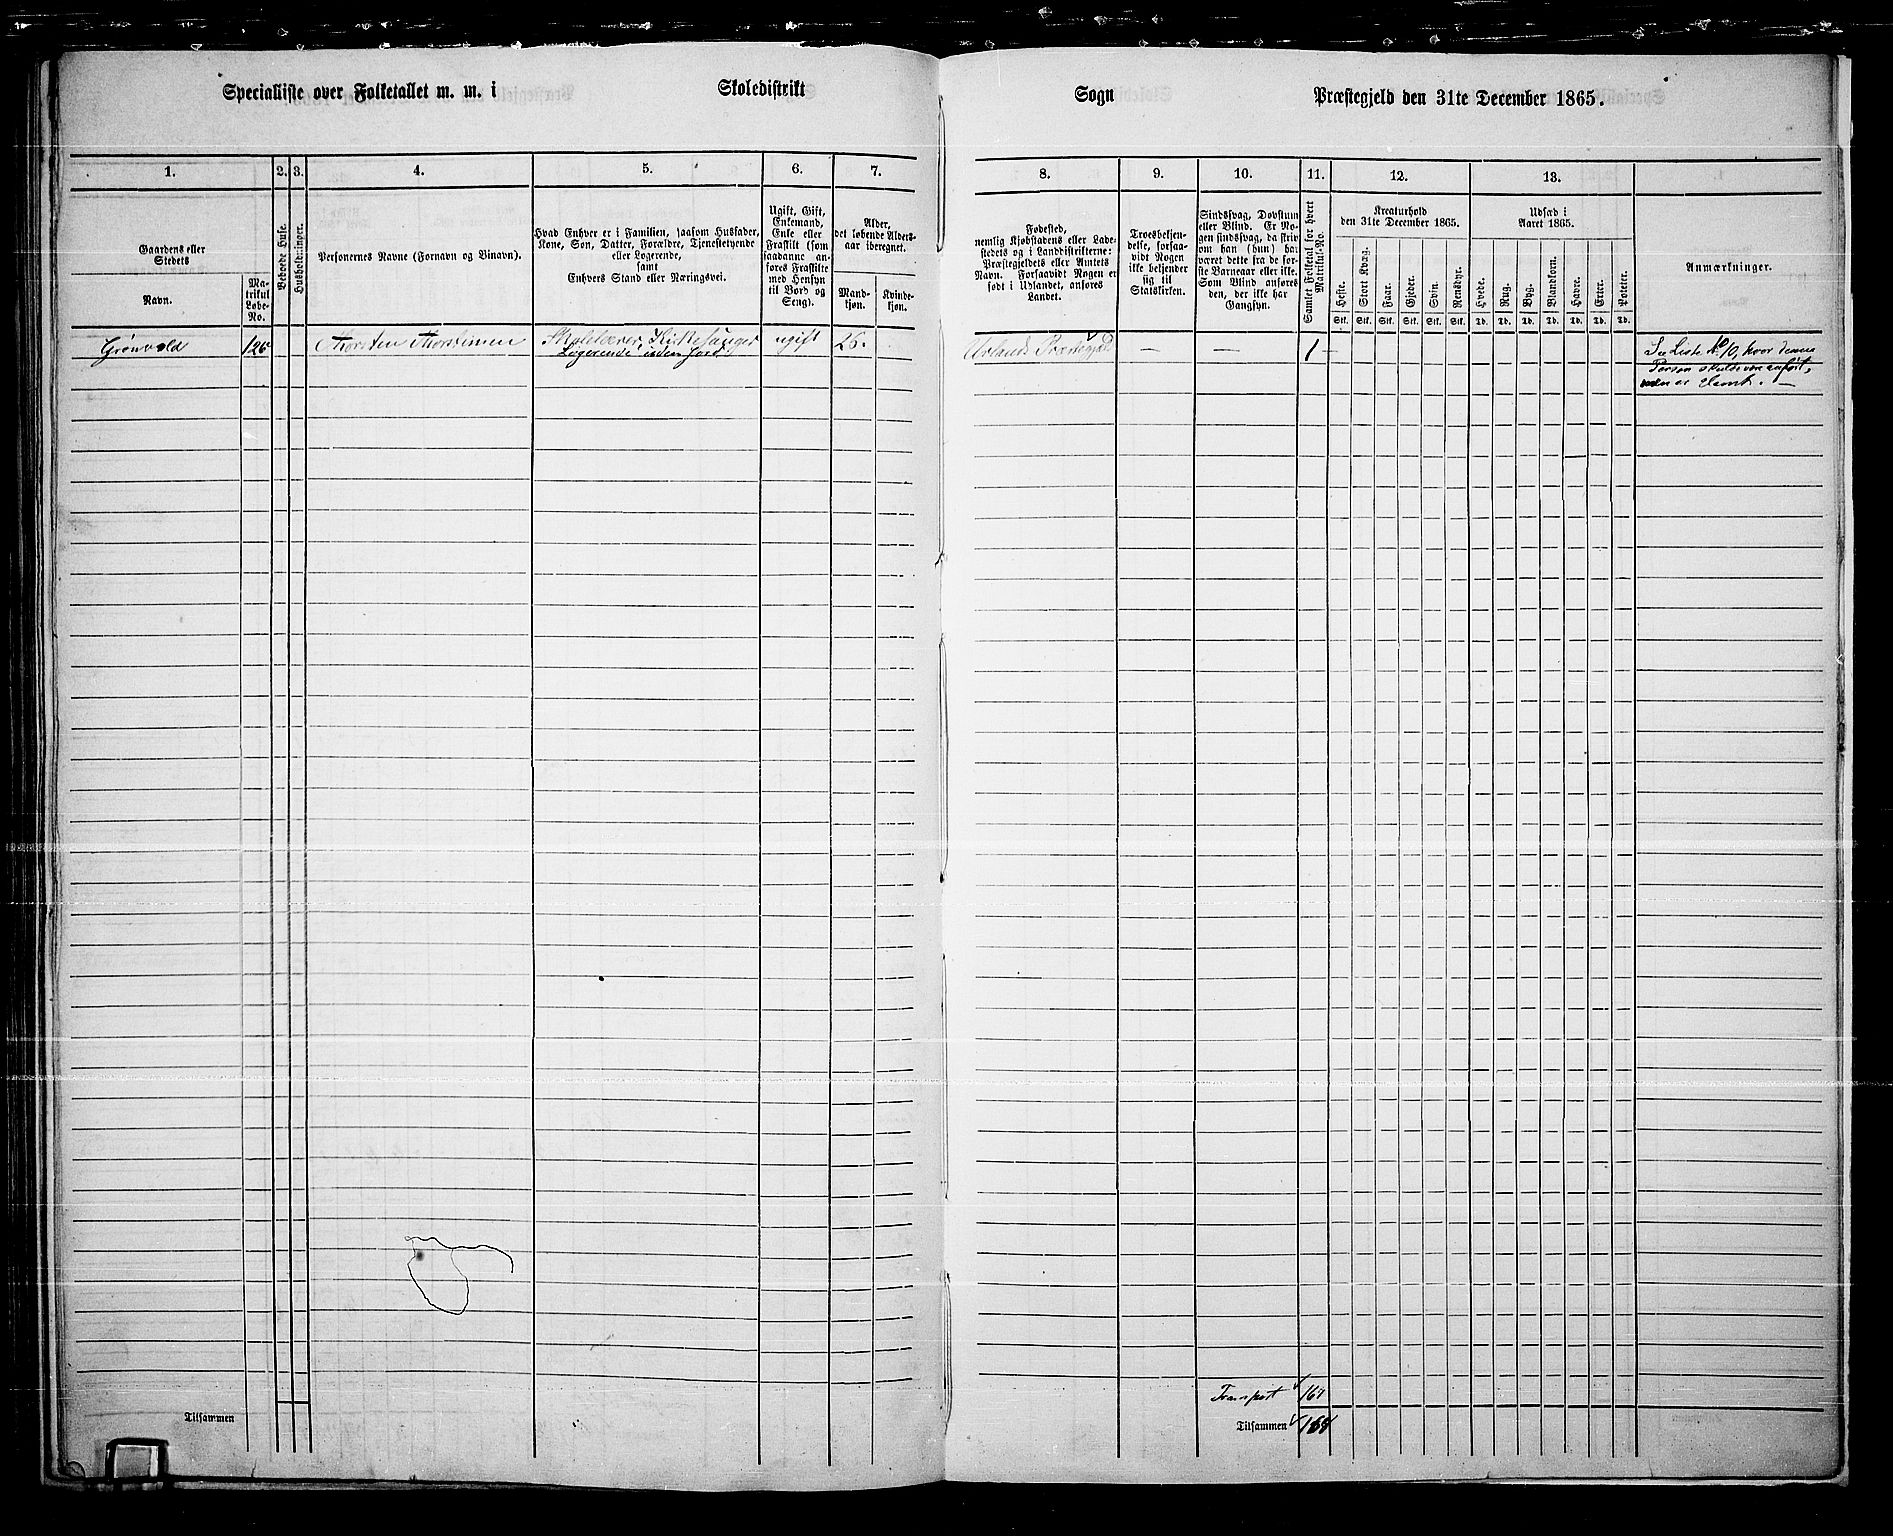 Specialliste over Folketallet m. m. i Skoledistrikt Sogn Præstegjeld den 31te December 1865.
1. 2. 3. 4. 5. 6. 7. 8. 9. 10. 11. 12. 13.
Gaardens eller
Stedets
Navn.
Ma-
trikul
Løbe-
No.
Beboede Huse.
Husholdninger.
Personernes Navne (Fornavn og Binavn).
Hvad Enhver er i Familien, saasom Husfader,
Kone, Søn, Datter, Forældre, Tjenestetyende
eller Logerende,
samt
Enhvers Stand eller Næringsvei.
Ugift, Gift,
Enkemand,
Enke eller
Fraskilt (som
saadanne an-
føres Fraskilte
med Hensyn
til Bord og
Seng).
Alder,
det løbende Alders-
aar iberegnet.
Mand-
kjøn.
Kvinde-
kjøn.
Fødested,
nemlig Kjøbstadens eller Lade-
stedets og i Landdistrikterne:
Præstegjeldets eller Amtets
Navn. Forsaavidt Nogen er
født i Udlandet, anføres
Landet.
Troesbekjen-
delse, forsaa-
vidt Nogen
ikke bekjender
sig til
Statskirken.
Sindssvag, Døvstum
eller Blind. Er No-
gen sindssvag, da skriv
om han (hun) har
været dette fra de før-
ste Barneaar eller ikke.
Som Blind anføres
den, der ikke har
Gangsyn.
Samlet Folketal for hvert
Matrikul-No.
Kreaturhold
den 31te December 1865.
Heste. Stort Kvæg. Faar. Gjeder. Svin. Rensdyr.
Stk. Stk. Stk. Stk. Stk. Stk.
Udsæd i
Aaret 1865.
Hvede. Rug. Byg. Blandkorn. Havre. Erter. Poteter.
Td. Td. Td. Td. Td. Td. Td.
Anmærkninger.
Grønvold 126 Thorsten Thorstensen Skolelærer, Kirkesanger ugift 26. Urlands Præstegjeld — — 1 — See Liste No 10, hvor denne
Logerende, uden Jord Person skulde være anført,
men er glemt. —
Transport 164
Tilsammen Tilsammen 164